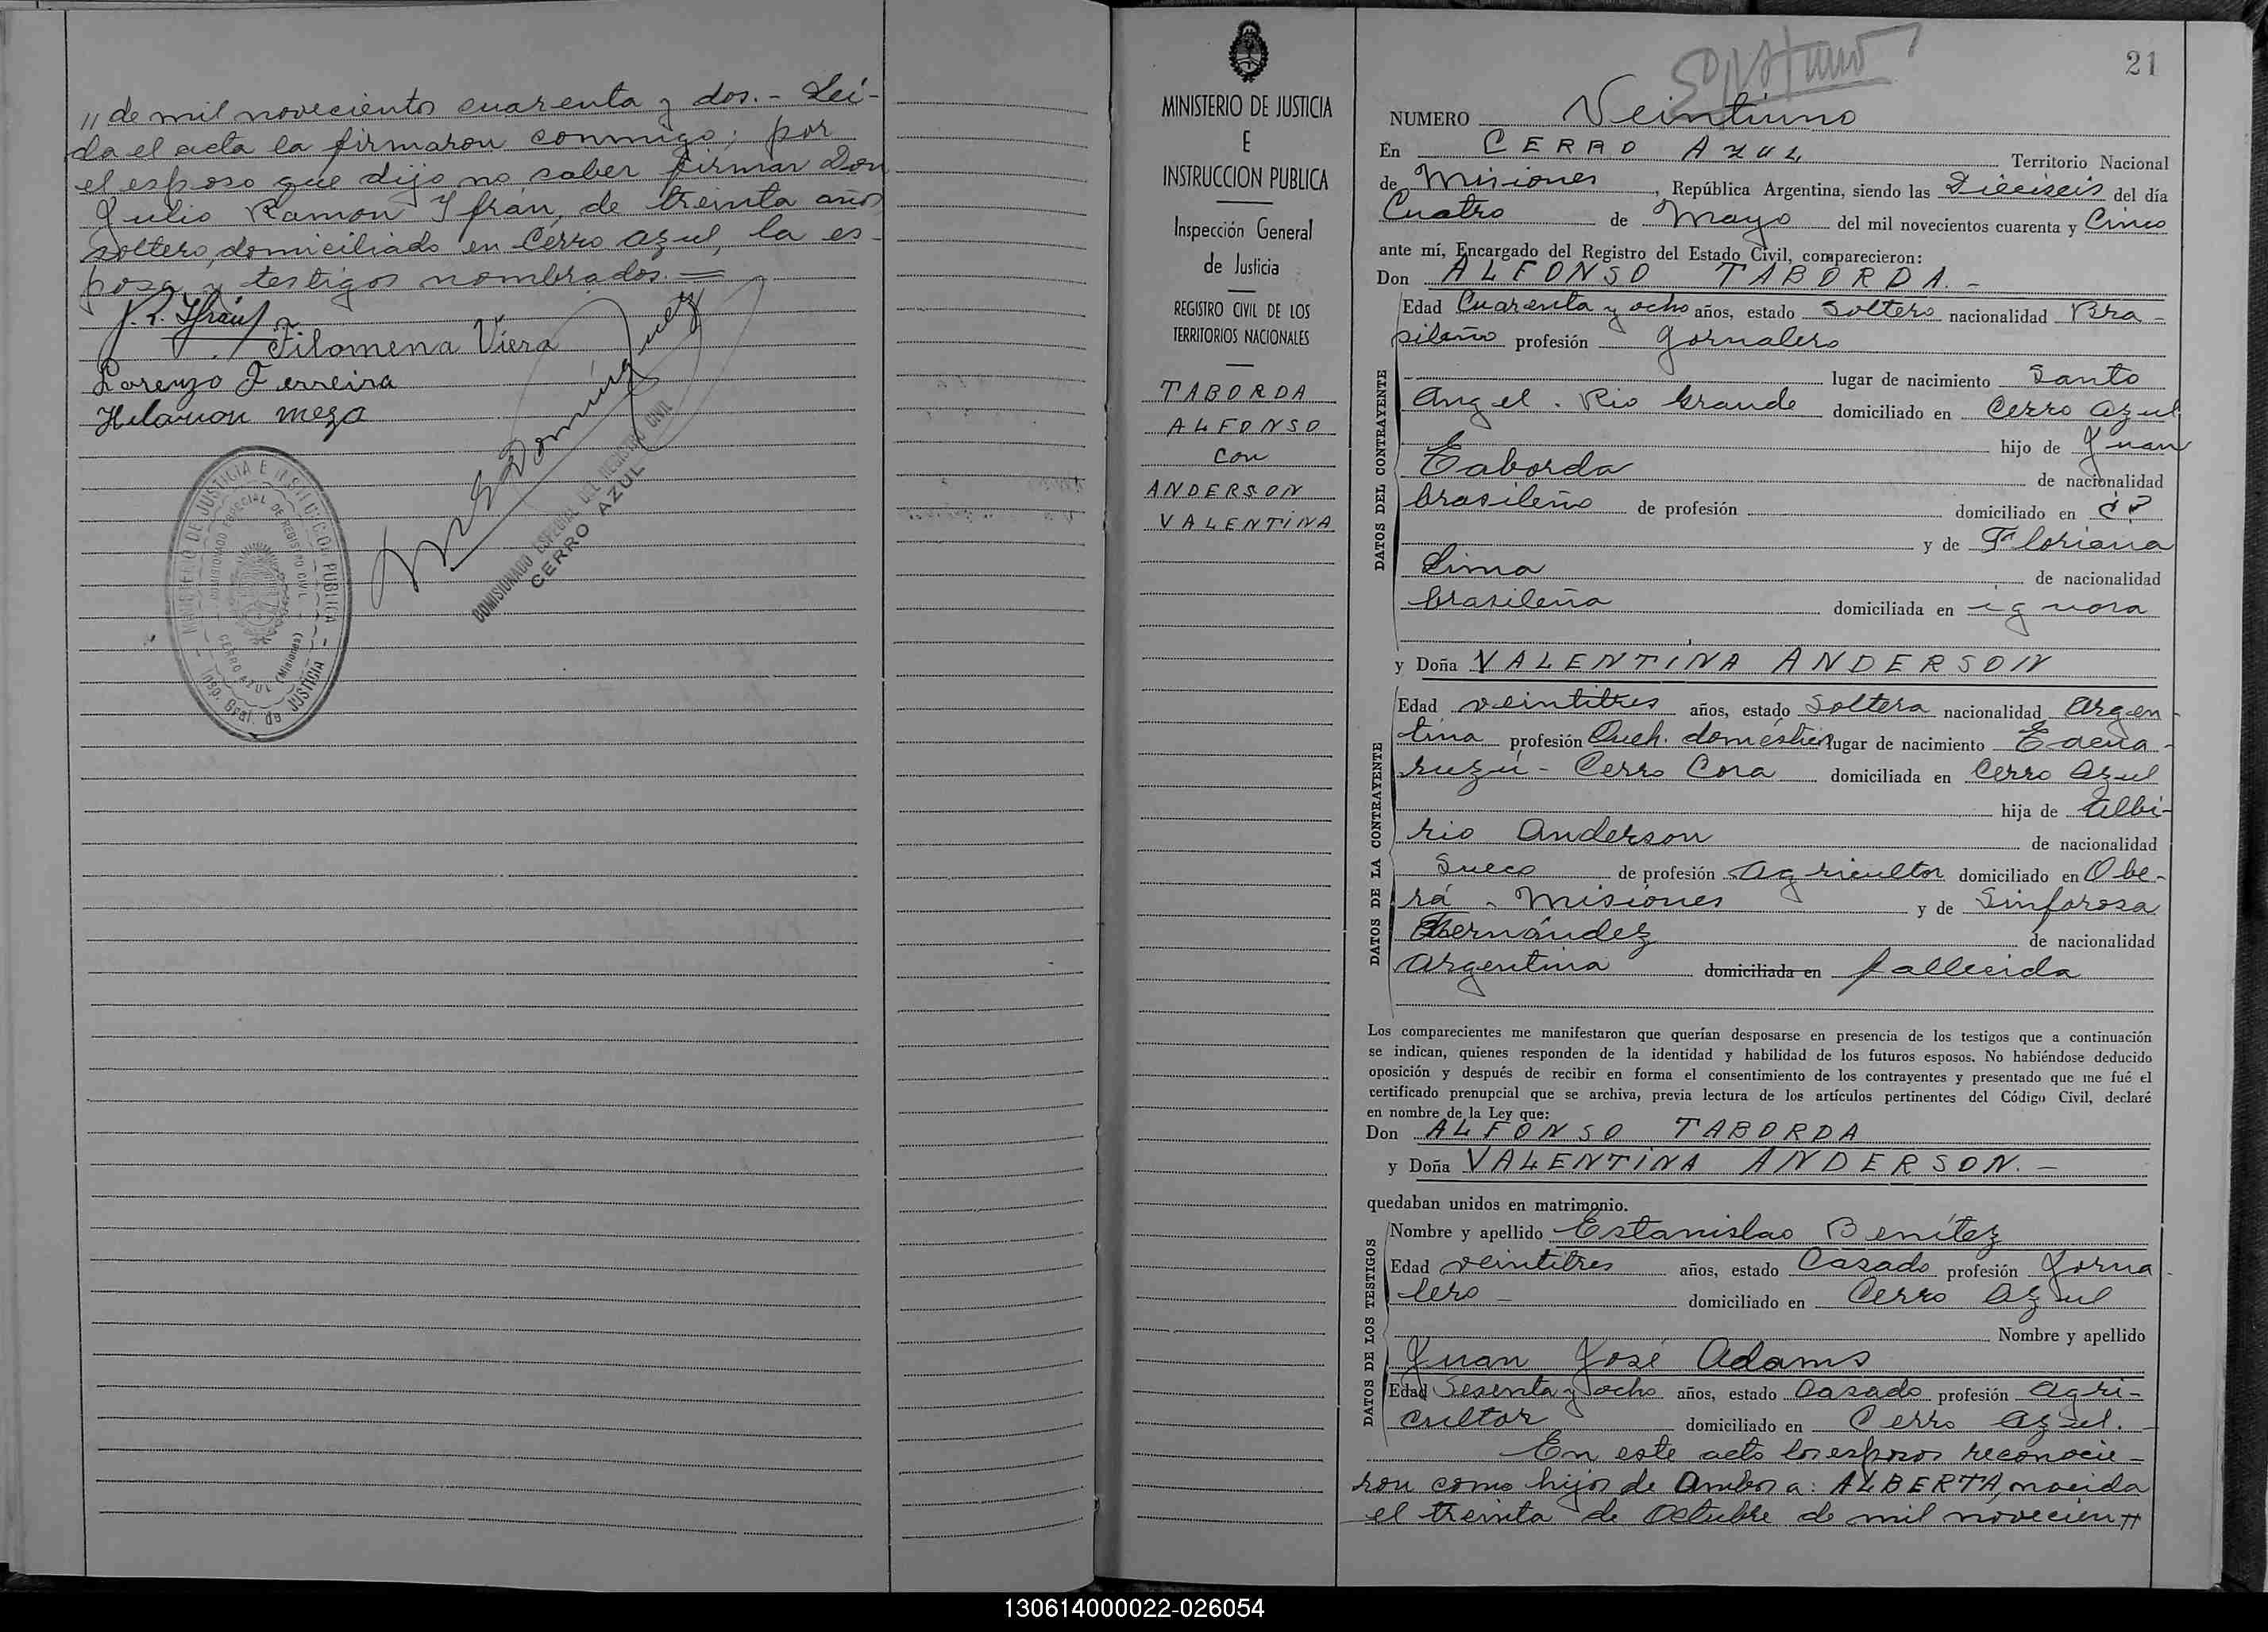 // de mil novecientos cuarenta y dos.- Leí-
da el acta la firmaron conmigo; por
el esposo que dijo no saber firmar Don
Julio Ramon Yfrán, de treinta años
soltero, domiciliado en Cerro Azul, la es-
posa y testigos nombrados.=
J. R. Yfrán
Filomena Viera
Lorenzo Ferreira
Hilarion Meza
MINISTERIO DE JUSTICIA E INSTRUCCION PUBLICA
COMISIONADO ESPECIAL DE REGISTRO CIVIL
CERRO AZUL (Misiones)
Insp. Gral. de JUSTICIA
COMISIONADO ESPECIAL DEL REGISTRO CIVIL
CERRO AZUL
MINISTERIO DE JUSTICIA
E
INSTRUCCION PUBLICA
Inspección General
de Justicia
REGISTRO CIVIL DE LOS
TERRITORIOS NACIONALES
TABORDA
ALFONSO
con
ANDERSON
VALENTINA
21
NUMERO Veintiuno
En CERRO AZUL Territorio Nacional
de Misiones, República Argentina, siendo las Dieciseis del día
Cuatro de Mayo del mil novecientos cuarenta y Cinco
ante mí, Encargado del Registro del Estado Civil, comparecieron:
Don ALFONSO TABORDA.-
DATOS DEL CONTRAYENTE
Edad Cuarenta y ocho años, estado Soltero nacionalidad Bra-
sileño profesión Jornalero
lugar de nacimiento Santo
Angel. Rio Grande domiciliado en Cerro Azul
hijo de Juan
Taborda de nacionalidad
brasileño de profesión domiciliado en
y de Floriana
Lima de nacionalidad
brasileña domiciliada en ignora
y Doña VALENTINA ANDERSON
DATOS DE LA CONTRAYENTE
Edad veintitres años, estado Soltera nacionalidad Argen-
tina profesión Queh. domésticos lugar de nacimiento Tacua-
ruzú - Cerro Cora domiciliada en Cerro Azul
hija de Albi-
rio Anderson de nacionalidad
Sueco de profesión Agricultor domiciliado en Obe-
rá - Misiones y de Sinforosa
Hernández de nacionalidad
Argentina domiciliada en fallecida
Los comparecientes me manifestaron que querían desposarse en presencia de los testigos que a continuación
se indican, quienes responden de la identidad y habilidad de los futuros esposos. No habiéndose deducido
oposición y después de recibir en forma el consentimiento de los contrayentes y presentado que me fué el
certificado prenupcial que se archiva, previa lectura de los artículos pertinentes del Código Civil, declaré
en nombre de la Ley que:
Don ALFONSO TABORDA
y Doña VALENTINA ANDERSON.-
quedaban unidos en matrimonio.
DATOS DE LOS TESTIGOS
Nombre y apellido Estanislao Benítez
Edad veintitres años, estado Casado profesión Jorna-
lero - domiciliado en Cerro Azul
Nombre y apellido
Juan José Adams
Edad Sesenta y ocho años, estado Casado profesión Agri-
cultor domiciliado en Cerro Azul.-
En este acto los esposos reconocie-
ron como hijos de Ambos a: ALBERTA, nacida
el treinta de Octubre de mil novecien//
130614000022-026054